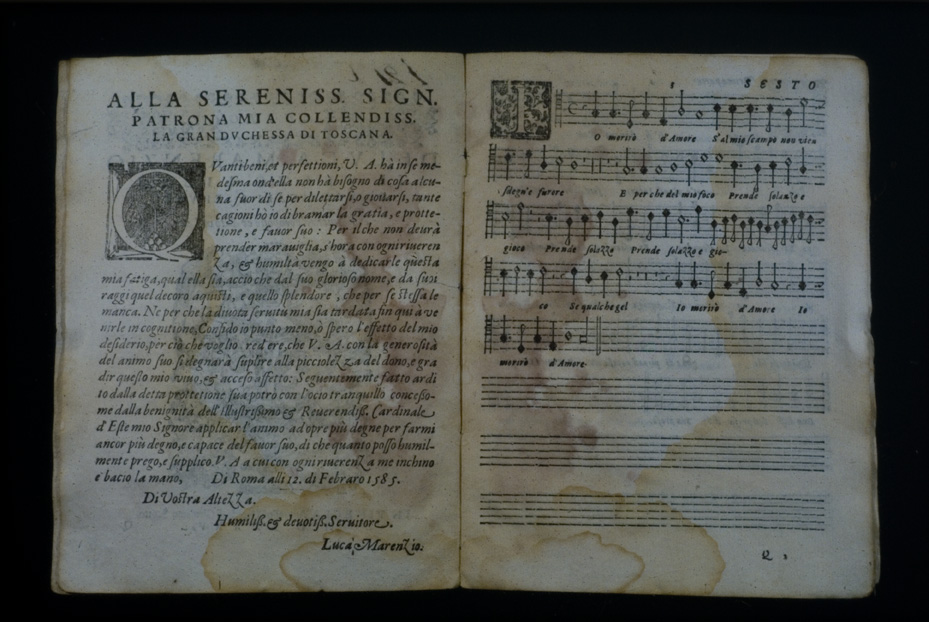 ALLA SERENISS. SIGN.
PATRONA MIA COLLENDISS.
LA GRAN DVCHESSA DI TOSCANA.
QVanti beni, et perfettioni, V. A. hà in se me-
desma ond'ella non hà bisogno di cosa alcu-
na fuor di se per dilettarsi, o gioitarsi, tante
cagioni hò io di bramar la gratia, e protte-
tione, e favor suo: Per il che non deurà
prender marauiglia, s'hora con ogni riueren
za, & humiltà vengo à dedicarle questa
mia fatiga, qual ella sia, acciò che dal suo glorioso nome, e da suoi
raggi quel decoro aquisti, e quello splendore, che per se stessa le
manca. Ne per che la diuota seruitù mia sia tardata fin qui à ve
nirle in cognitione, Confido io punto meno, ò spero l'effetto del mio
desiderio, per ciò che voglio credere, che V. A. con la generosità
del animo suo si degnarà suplire alla picciolezza del dono, e gra
dir questo mio viuo, & acceso affetto: Seguentemente fatto ardi
to dalla detta prottetione sua potrò con l'ocio tranquillo concesso-
me dalla benignità dell'Illustrissimo & Reuerendiss. Cardinale
d'Este mio Signore applicar l'animo ad opre più degne per farmi
ancor più degno, e capace del fauor suo, di che quanto posso humil-
mente prego, e supplico. V. A a cui con ogni riuerenza me inchino
e bacio la mano, Di Roma alli 12. di Febraro 1585.
Di Vostra Altezza.
Humiliss. & deuotiss. Seruitore.
Luca Marenzio.
1 SESTO
IO morirò d'Amore S'al mio scampo non vien
sdegn'e furore E per che del mio foco Prende solazzo e
gioco Prende solazzo Prende solazzo e gio-
co Se qualche gel Io morirò d'Amore Io
morirò d'Amore.